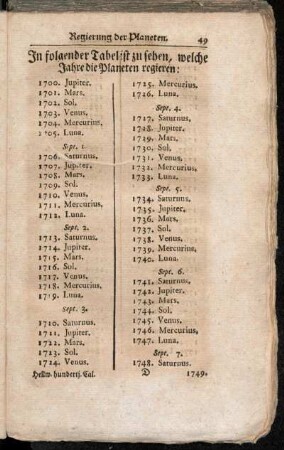 Regierung der Planeten. 49
In folgender Tabel ist zu sehen, welche
Jahre die Planeten regieren:
1700. Jupiter.
1701. Mars.
1702. Sol.
1703. Venus.
1704. Mercurius.
1705. Luna.
Sept. 1.
1706. Saturnus.
1707. Jupiter.
1708. Mars.
1709. Sol.
1710. Venus.
1711. Mercurius.
1712. Luna.
Sept. 2.
1713. Saturnus.
1714. Jupiter.
1715. Mars.
1716. Sol.
1717. Venus.
1718. Mercurius.
1719. Luna.
Sept. 3.
1710. Saturnus.
1711. Jupiter.
1722. Mars.
1723. Sol.
1724. Venus.
Hellw. hundertj. Cal.
1725. Mercurius.
1726. Luna.
Sept. 4.
1717. Saturnus.
1728. Jupiter.
1729. Mars.
1730. Sol.
1731. Venus.
1732. Mercurius.
1733. Luna.
Sept. 5.
1734. Saturnus.
1735. Jupiter.
1736. Mars.
1737. Sol.
1738. Venus.
1739. Mercurius.
1740. Luna.
Sept. 6.
1741. Saturnus.
1742. Jupiter.
1743. Mars.
1744. Sol.
1745. Venus.
1746. Mercurius.
1747. Luna.
Sept. 7.
1748. Saturnus.
D 1749.